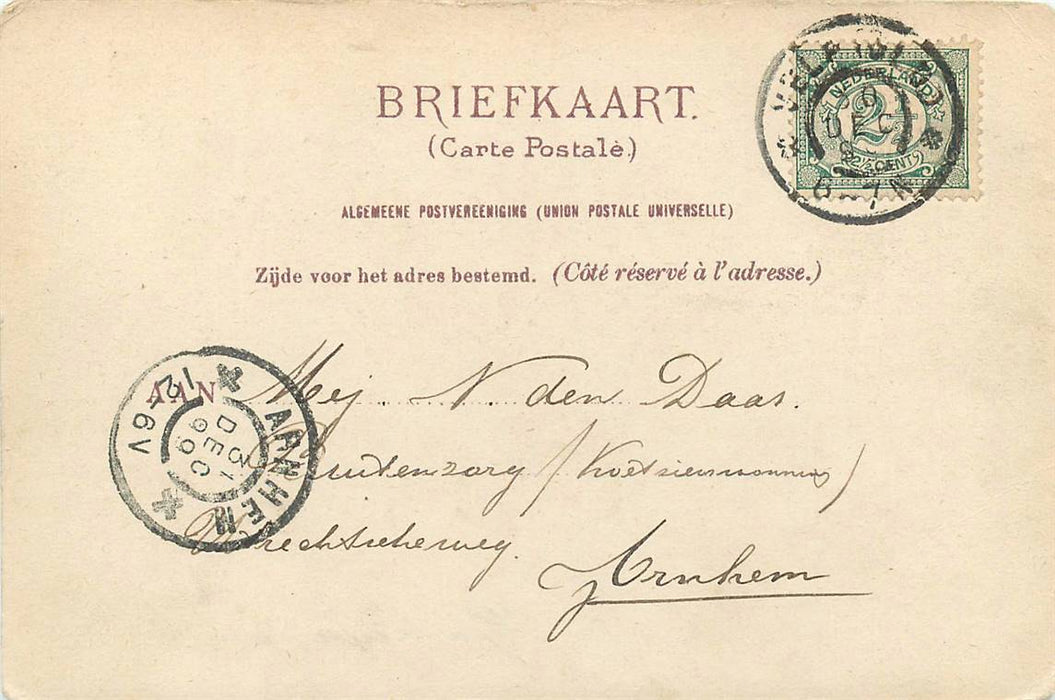 BRIEFKAART.
(Carte Postale.)
ALGEMEENE POSTVEREENIGING (UNION POSTALE UNIVERSELLE)
Zijde voor het adres bestemd. (Côté réservé à l'adresse.)
NEDERLAND
2½
2½ CENTS
VELP (GLD)
30
DEC
6-7N
AAN Mej. N. den Daas.
Buitenzorg (Koetsierswoning)
Utrechtscheweg.
Arnhem
ARNHEM
31
DEC
99
12-6V